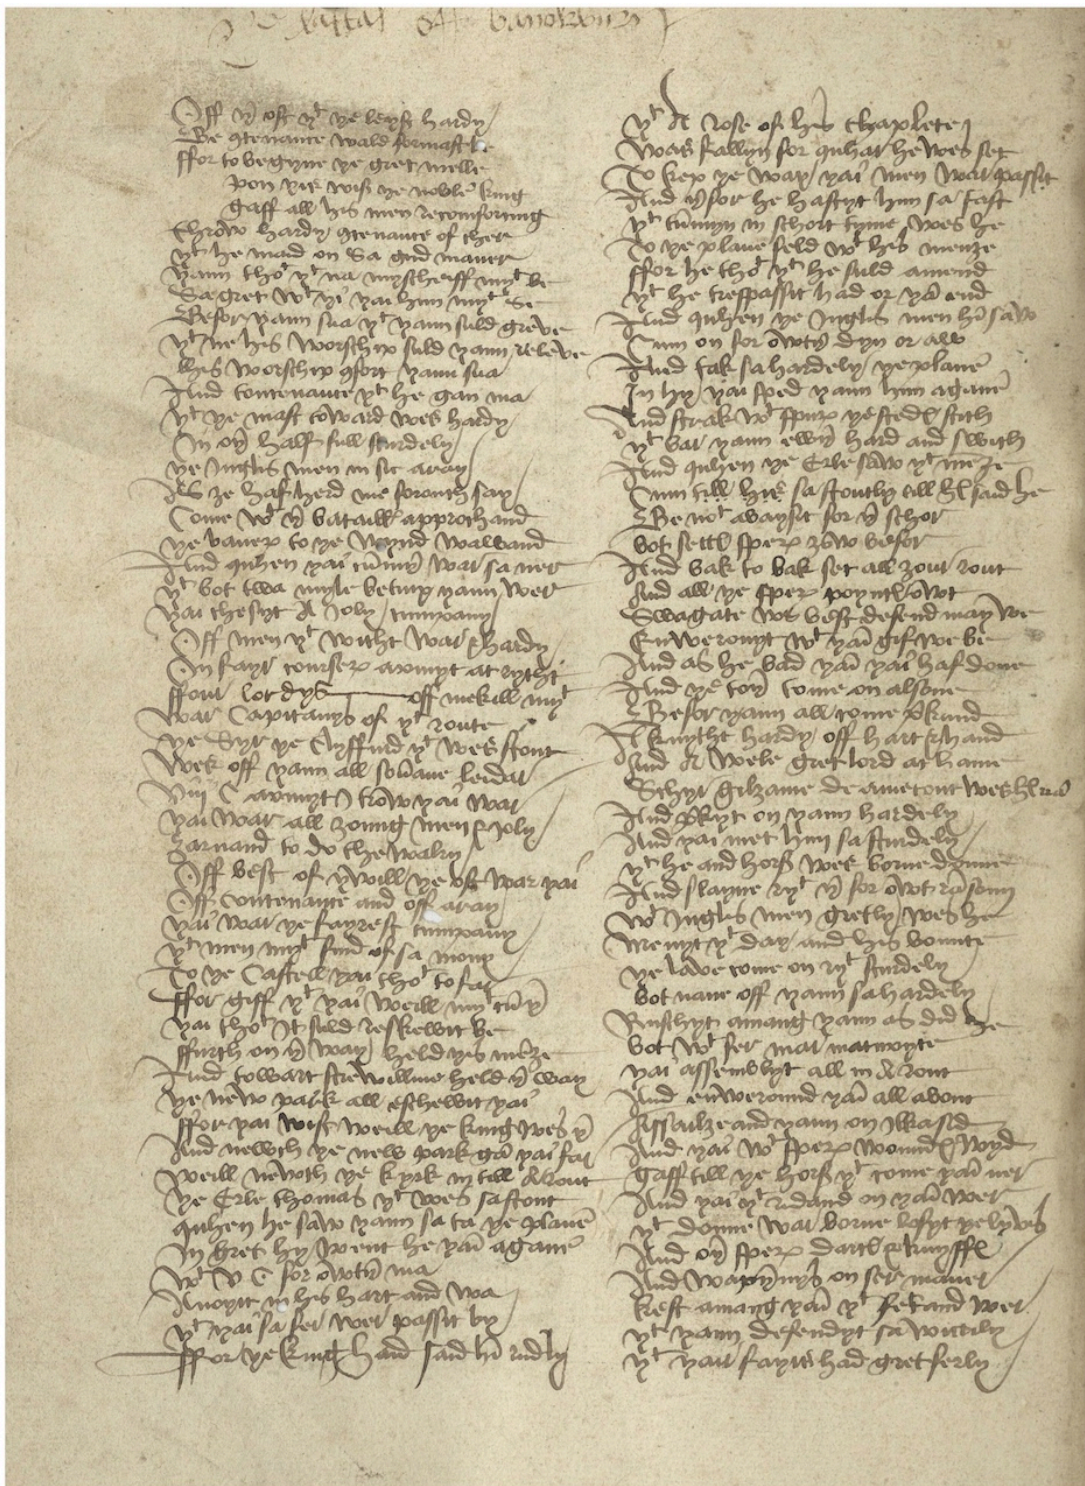 battal off banokburn
Off yͤ ost yᵗ ye leyst hardy
Be ꝯtenance wald formast be
ffor to begyne ye gret melle
Upon yis wis ye noble king
gaff all his men recomforting
Throw hardy ꝯtenance of cher
yᵗ he maid on sa gud maner
yaim thoᵗ yᵗ na myscheiff myᵗ be
Sa gret wᵗ yi yai him myᵗ se
Befor yaim sua yᵗ yaim suld greve
yᵗ ne his worschip suld yaim releve
his worschip ꝯfort yaim sua
And contenance yᵗ he gan ma
yᵗ ye mast coward wes hardy
On oyͬ half full sturdely
ye Inglis men in sic aray
As ze haf herd me forouth say
Come wᵗ yͬ bataillis approchand
ye baneris to ye wynd walvand
And quhen yai cūmyn war sa ner
yᵗ bot twa myle betuix yaim wer
yai chesyt A Joly cumpany
Off men yᵗ wicht war & hardy
On fayr courseris armyt at rycht
ffour lordys off mekill myᵗ
War Capitanys of yᵗ route
ye Syr ye Clyffurd yᵗ wes stout
Wes off yaim all soūane leidar
viij C armyt I trow yai war
yai war all zoung men & Joly
zarnand to do chewalry
Off best of all ye ost war yai
Off contenance and off aray
yai war ye fayrest cumpany
yᵗ men myᵗ find of sa mony
To ye Castell yai thoᵗ to far
ffor giff yᵗ yai weill myᵗ cū yͬ
yai thoᵗ It suld reskewit be
ffurth on yͬ way held yis mēze
And towart strewilline held yͬ way
ye new park all eschewit yai
ffor yai wist weill ye king wes yͬ
And newth ye new park gā yai far
weill newth ye kyrk in till A rout
ye Erle thomas yᵗ wes sa stout
quhen he saw yaim sa ta ye planē
In gret hy went he yaī aganē
Wᵗ V C for owtyn ma
Anoyit in his hart and wa
yᵗ yai sa fer wer passit by
ffor ye king haid said hī rudly
yᵗ A rose of his chaplete
Was fallyn for quhar he wes set
To kep ye way yai men war passit
And yͬfor he hastyt him sa fast
yᵗ cūmyn in schort tyme wes he
To ye plane feld wᵗ his menze
ffor he thoᵗ yᵗ he suld amend
yᵗ he trespassit had or yā end
And quhen ye Inglis men hī saw
Cum on for owtyn dyn or aw
And tak sa hardely ye planē
In hy yai sped yaim him aganē
And strak wᵗ spuris ye stedis stith
yᵗ bar yaim ewyn hard and swith
And quhen ye Erle saw yᵗ mēze
Cum sa stoutly till his said he
Be noᵗ abaysit for yͬ schor
bot settis speris zow befor
And bak to bak set all zour rout
And all ye speris poyntis owt
Swagate ws best defend may we
Enweronyt wᵗ yaī gif we be
And as he bad yaī yai haf done
And ye toyͬ come on alsone
Befor yaim all come prikand
A knycht hardy off hart & hand
And A wele gret lord at hame
Schyr gilzame deamecourt wes his nā
And prikyt on yaim hardely
And yai met him sa sturdely
yᵗ he and hors wes borne doune
And slayne ryᵗ yͬ for owt rāsoun
wᵗ Inglis men gretly wes he
Menyt yᵗ day and his bounte
ye lave come on ryᵗ sturdely
bot nane off yaim sa hardely
Ruschyt amang yaim as did he
bot wᵗ fer mar maturyte
yai assemblyt all in A rout
And enweround yaī all about
Assailzeand yaim on ilka sid
And yai wᵗ speris woundis wyd
gaff till ye hors yᵗ come yaī ner
And yai yᵗ ridand on yaī wer
yᵗ doune war borne losyt ye lyvis
And oyͬ speris dartis & knyffis
And wapynnys on ser maner
kest amang yaī yᵗ fechtand wer
yᵗ yaim defendyt sa wittily
yᵗ yair fayis had gret ferly